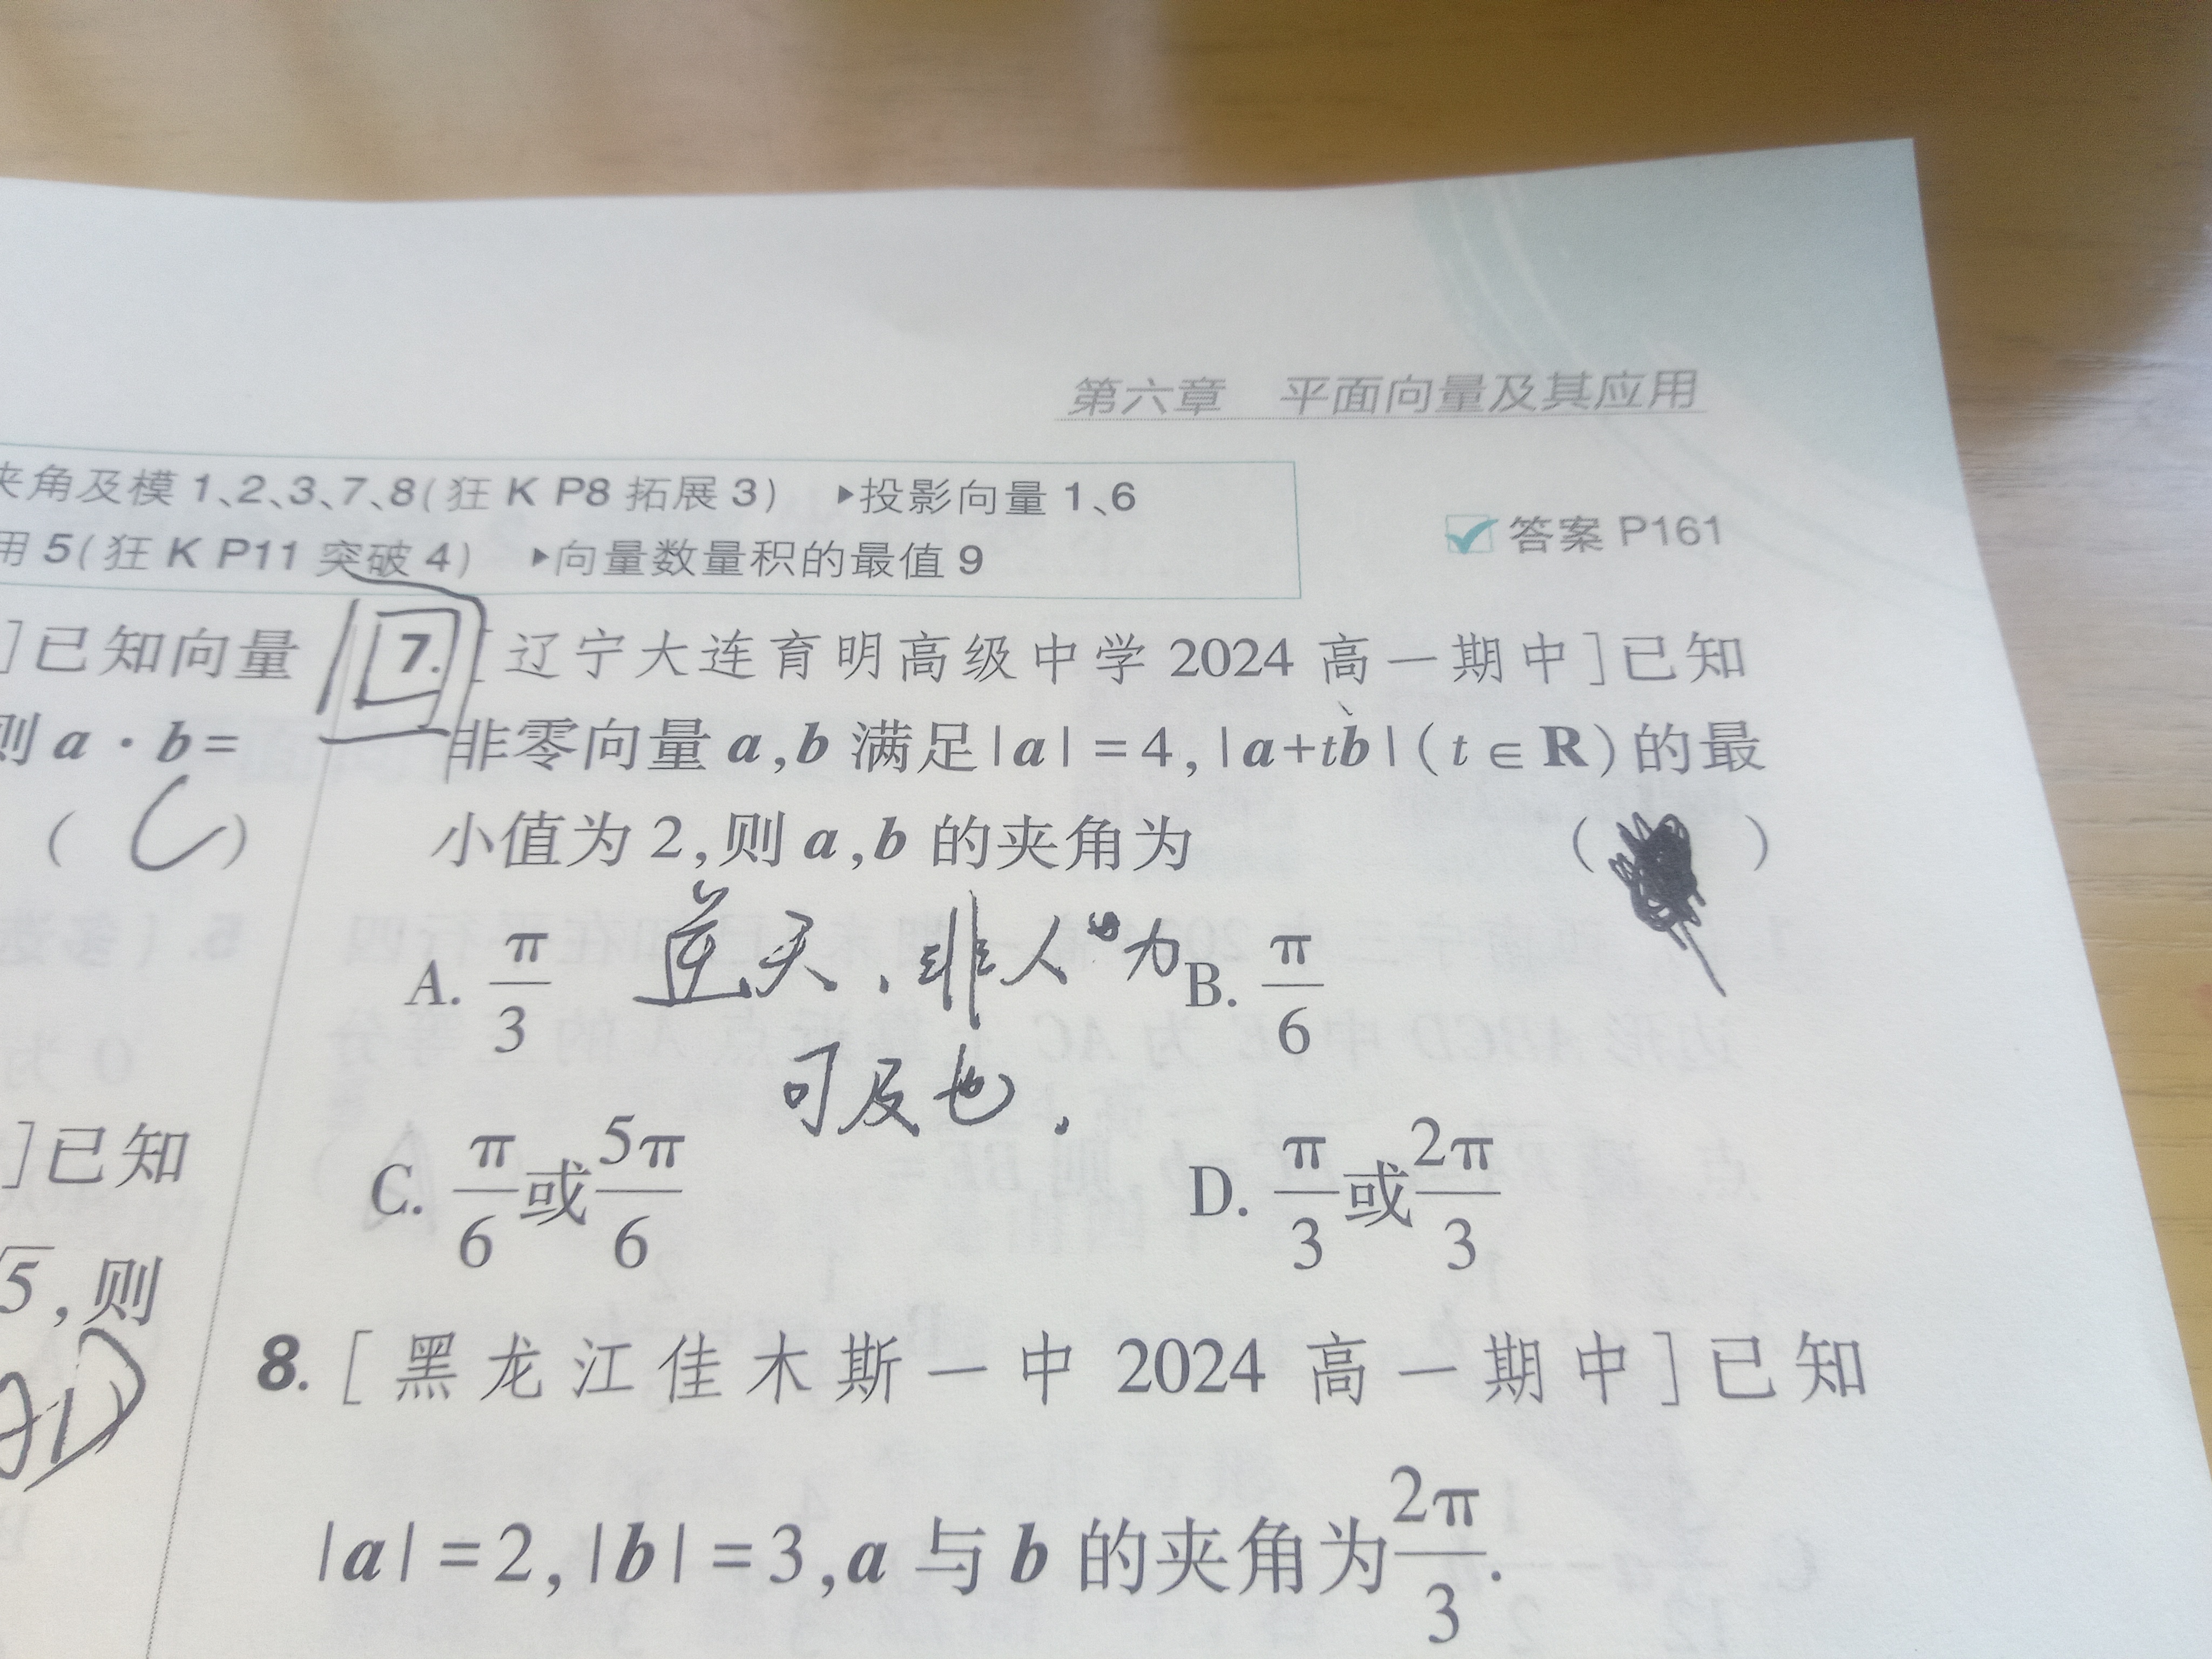 第六章 平面向量及其应用
夹角及模 1、2、3、7、8(狂 K P8 拓展 3) ▸投影向量 1、6
用 5(狂 K P11 突破 4) ▸向量数量积的最值 9
答案 P161
]已知向量
则 a · b=
( C )
]已知
5,则
7. [辽宁大连育明高级中学 2024 高一期中]已知
非零向量 a,b 满足|a|=4,|a+tb|(t∈R)的最
小值为 2,则 a,b 的夹角为 ( )
A. π/3 B. π/6
逆天,非人力
可及也.
C. π/6或5π/6 D. π/3或2π/3
8. [黑龙江佳木斯一中 2024 高一期中]已知
|a|=2,|b|=3,a 与 b 的夹角为2π/3.